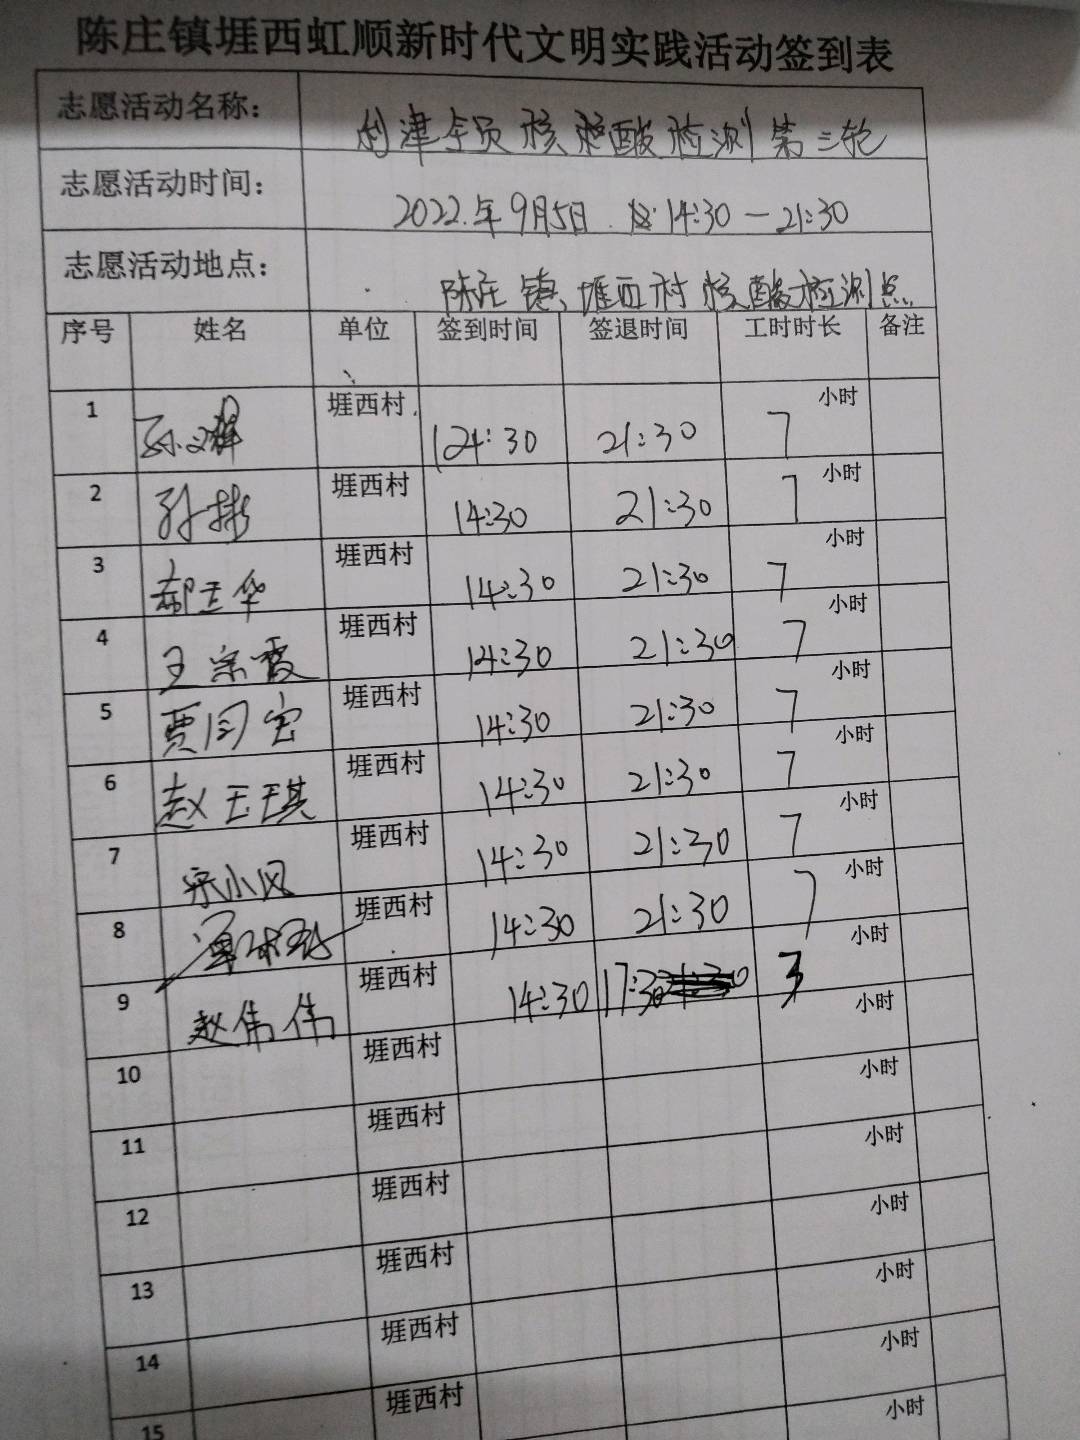 陈庄镇堐西虹顺新时代文明实践活动签到表
志愿活动名称： 利津全员核酸检测第三轮
志愿活动时间： 2022.年9月5日. 14:30—21:30
志愿活动地点： 陈庄镇、堐西村核酸检测点
序号 姓名 单位 签到时间 签退时间 工时时长 备注
1 孙文辉 堐西村 14:30 21:30 7 小时
2 孙彬 堐西村 14:30 21:30 7 小时
3 郝玉华 堐西村 14:30 21:30 7 小时
4 王宗霞 堐西村 14:30 21:30 7 小时
5 贾同宝 堐西村 14:30 21:30 7 小时
6 赵玉琪 堐西村 14:30 21:30 7 小时
7 宋小风 堐西村 14:30 21:30 7 小时
8 堐西村 14:30 21:30 7 小时
9 赵伟伟 堐西村 14:30 17:30 3 小时
10 堐西村 小时
11 堐西村 小时
12 堐西村 小时
13 堐西村 小时
14 堐西村 小时
15 堐西村 小时